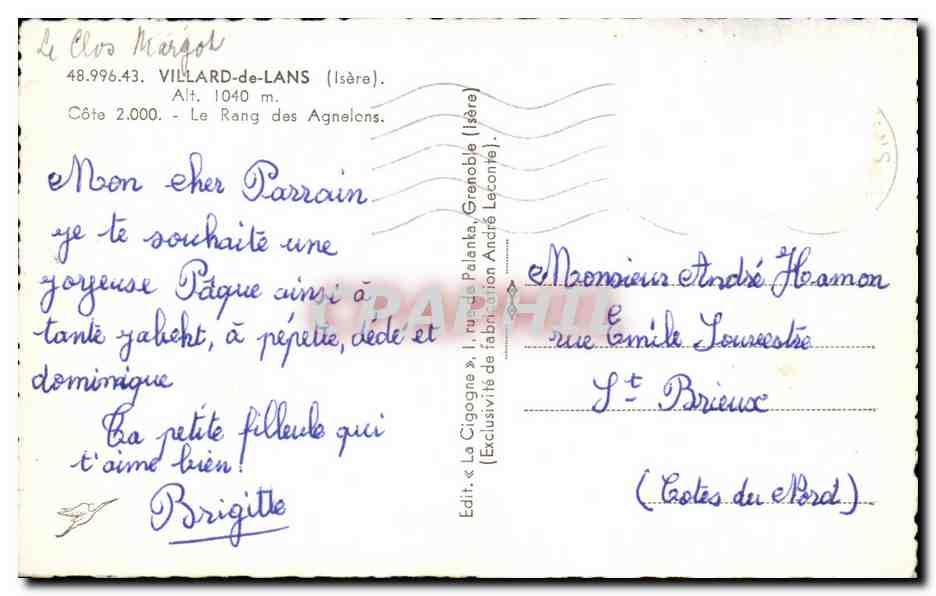 Le Clos Margot
48.996.43. VILLARD-de-LANS (Isère).
Alt. 1040 m.
Côte 2.000. - Le Rang des Agnelons.
Mon cher Parrain
je te souhaite une
joyeuse Pâque ainsi à
tante, à pépette, dédé et
dominique
Ta petite filleule qui
t'aime bien!
Brigitte
Edit. « La Cigogne », 1, rue de Palanka, Grenoble (Isère)
(Exclusivité de fabrication André Leconte).
Monsieur André Hamon
rue Emile Souvestre
St Brieux
(Cotes du Nord)
CPARPHIL